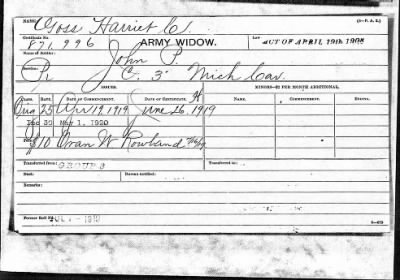 NAME: Goss Harriet C.
(3—P. A. S.)
Certificate No. 871,996 ARMY WIDOW. LAW ACT OF APRIL 19th 1908
Name of Soldier: John P.
Service: Pv C. 3" Mich Cav.
ISSUES. MINORS—$2 PER MONTH ADDITIONAL.
CLASS. RATE. DATE OF COMMENCEMENT. DATE OF CERTIFICATE. NAME. COMMENCEMENT. EXPIRES.
Orig 25 Apr 19, 1919 June 26, 1919
Inc 30 May 1, 1920
Fee $10 Oran W Rowland
Transferred from: GROUP 3 Transferred to:
Died: Bureau notified:
Remarks:
Former Roll No. JUL 1919